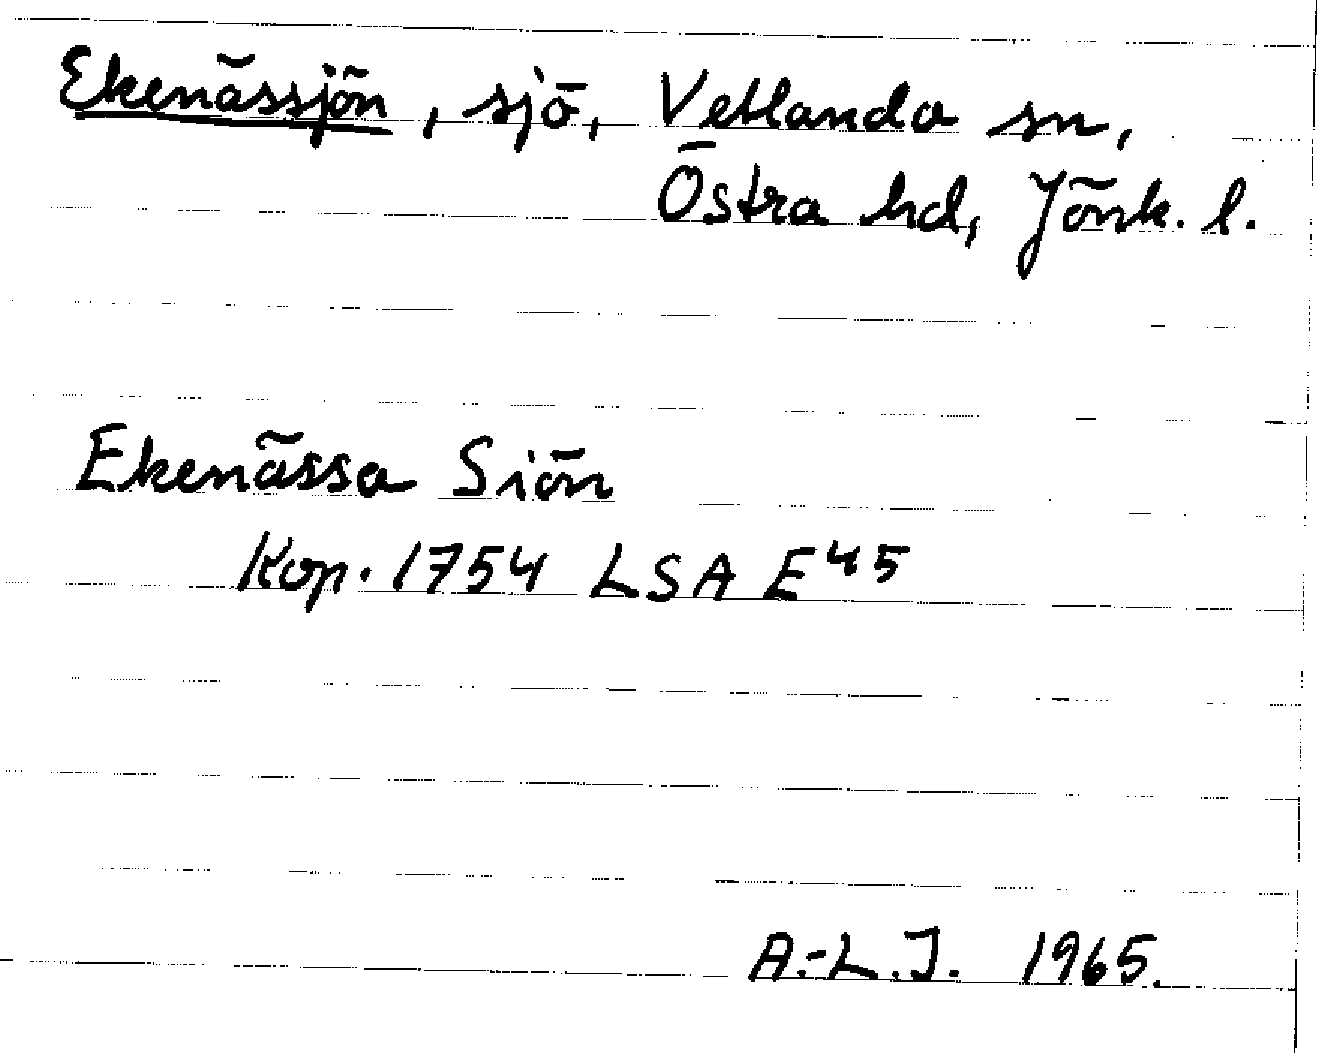 Ekenässjön, sjö, Vetlanda sn,
Östra hd, Jönk. l.
Ekenässa Siön
Kop. 1754 LSA E45
A.-L.J. 1965.